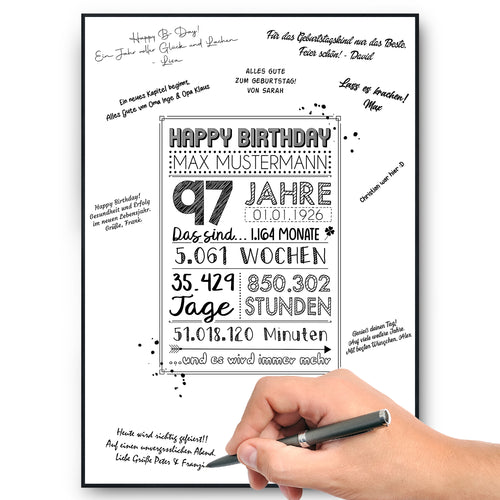 Happy B-Day!
Ein Jahr voller Glück und Lachen
- Lisa
Für das Geburtstagskind nur das Beste.
Feier schön! - David
ALLES GUTE
ZUM GEBURTSTAG!
VON SARAH
Lass es krachen!
Max
Ein neues Kapitel beginnt,
Alles Gute von Oma Inge & Opa Klaus
Christian war hier :D
Happy Birthday!
Gesundheit und Erfolg
im neuen Lebensjahr.
Grüße, Frank.
HAPPY BIRTHDAY
MAX MUSTERMANN
97 JAHRE
01.01.1926
Das sind... 1.164 MONATE
5.061 WOCHEN
35.429 Tage
850.302 STUNDEN
51.018.120 Minuten
...und es wird immer mehr
Genieß deinen Tag!
Auf viele weitere Jahre.
Mit besten Wünschen, Alex
Heute wird richtig gefeiert!!
Auf einen unvergesslichen Abend.
Liebe Grüße Peter & Franzi